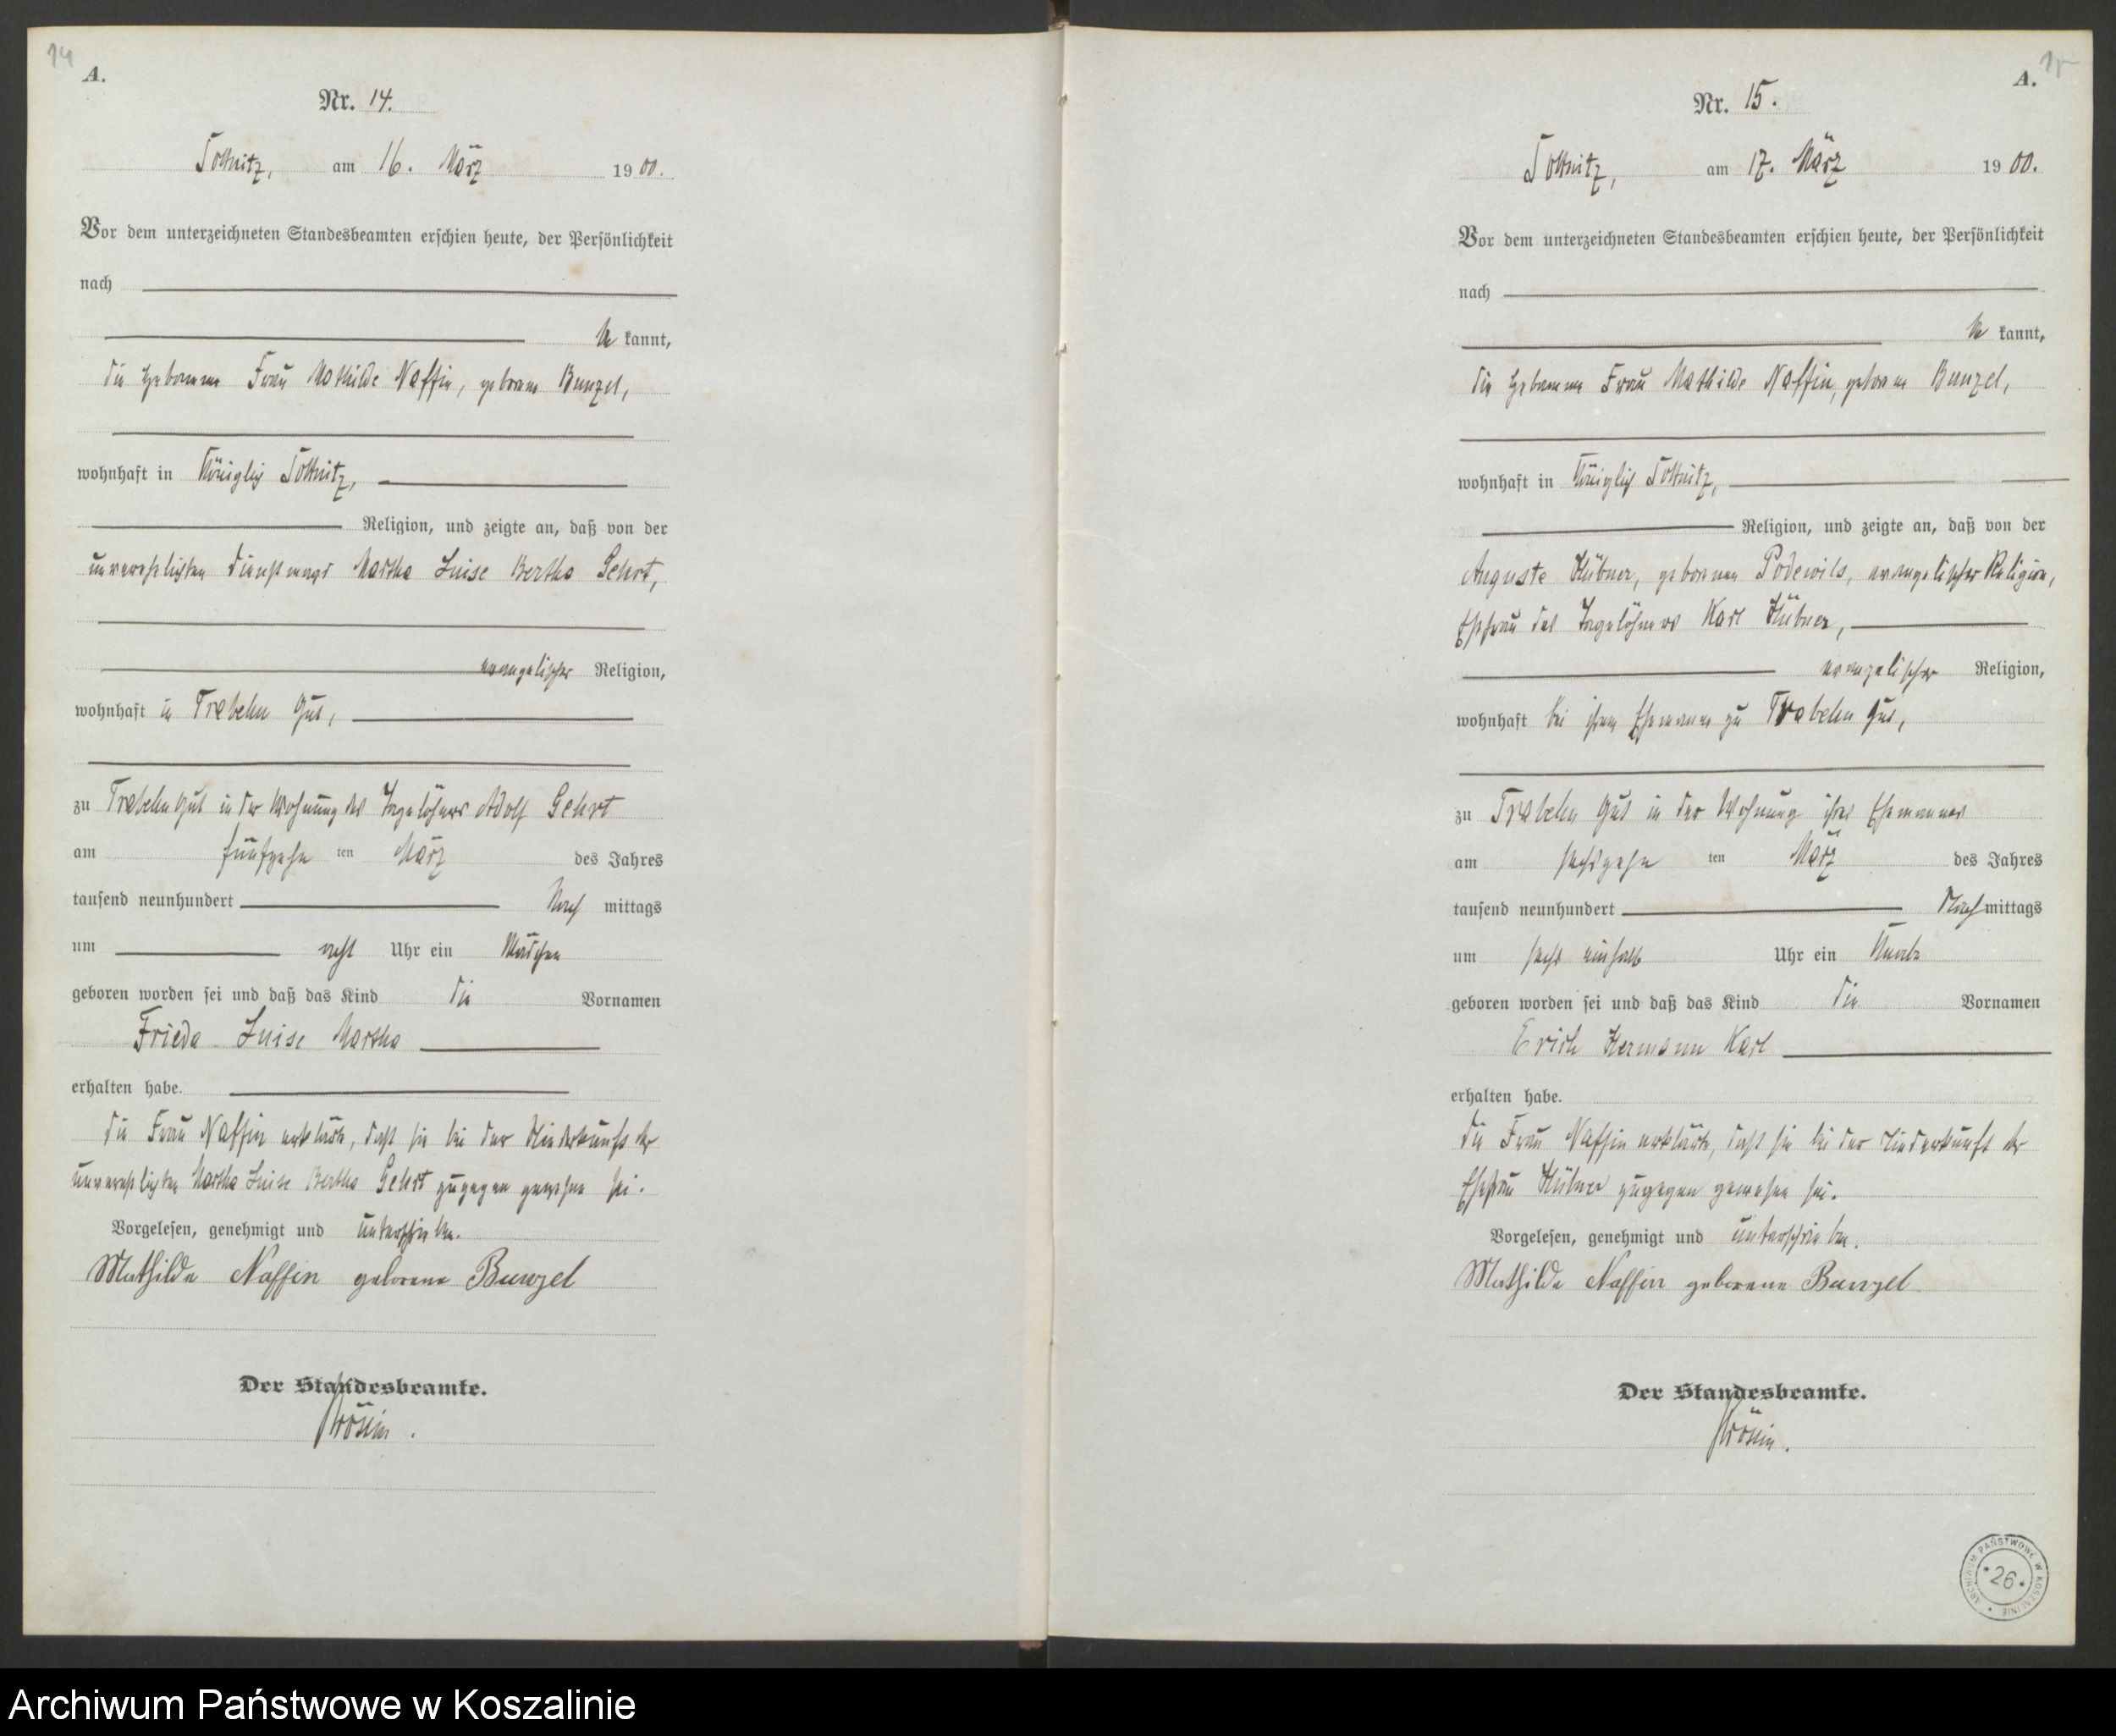 14
A.
Nr. 14.
am 16. März 1900.
Vor dem unterzeichneten Standesbeamten erschien heute, der Persönlichkeit
nach
be kannt,
die Hebamme Frau Mathilde Naffin, geborene Bunzel,
wohnhaft in Königlich
Religion, und zeigte an, daß von der
unverehelichten Dienstmagd Martha Luise Bertha Gehrt,
evangelischer Religion,
wohnhaft in Trabehn Gut,
zu Trabehn Gut in der Wohnung des Tagelöhners Adolf Gehrt
am fünfzehn ten März des Jahres
tausend neunhundert Nach mittags
um acht Uhr ein Mädchen
geboren worden sei und daß das Kind die Vornamen
Frieda Luise Martha
erhalten habe.
Die Frau Naffin erklärte, daß sie bei der Niederkunft der
unverehelichten Martha Luise Bertha Gehrt zugegen gewesen sei.
Vorgelesen, genehmigt und unterschrieben.
Mathilde Naffin geborene Bunzel
Der Standesbeamte.
A.
Nr. 15.
am 17. März 1900.
Vor dem unterzeichneten Standesbeamten erschien heute, der Persönlichkeit
nach
be kannt,
die Hebamme Frau Mathilde Naffin, geborene Bunzel,
wohnhaft in Königlich
Religion, und zeigte an, daß von der
Auguste Hübner, geborenen Podewils, evangelischer Religion,
Ehefrau des Tagelöhners Karl Hübner,
evangelischer Religion,
wohnhaft bei ihrem Ehemanne zu Trabehn Gut,
zu Trabehn Gut in der Wohnung ihres Ehemannes
am sechszehn ten März des Jahres
tausend neunhundert Nach mittags
um sechs einhalb Uhr ein Knabe
geboren worden sei und daß das Kind die Vornamen
Erich Hermann Karl
erhalten habe.
Die Frau Naffin erklärte, daß sie bei der Niederkunft der
Ehefrau Hübner zugegen gewesen sei.
Vorgelesen, genehmigt und unterschrieben.
Mathilde Naffin geborene Bunzel
Der Standesbeamte.
ARCHIWUM PAŃSTWOWE W KOSZALINIE
* 26 *
Archiwum Państwowe w Koszalinie